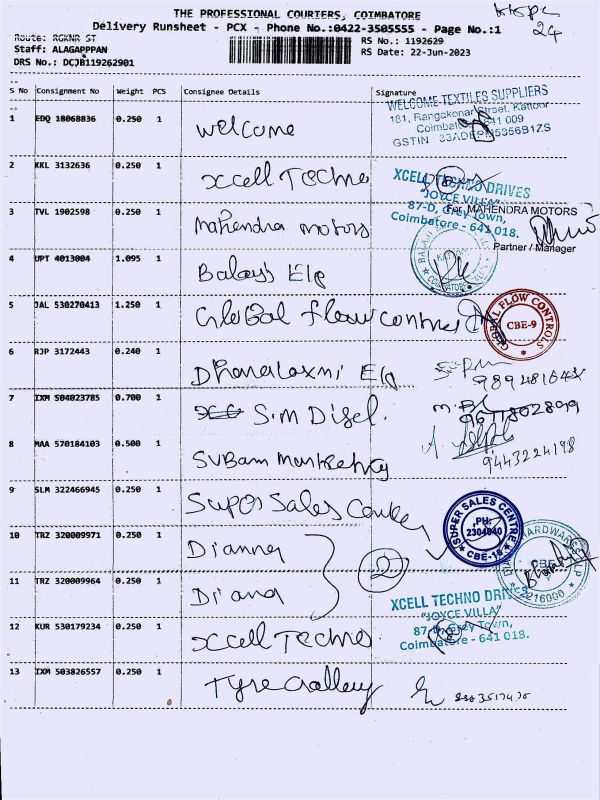 THE PROFESSIONAL COURIERS, COIMBATORE
Delivery Runsheet - PCX - Phone No.:0422-3505555 - Page No.:1
24
Route: RGKNR ST
Staff: ALAGAPPPAN
DRS No.: DCJB119262901
RS No.: 1192629
RS Date: 22-Jun-2023
S No Consignment No Weight PCS Consignee Details Signature
1 EDQ 18068836 0.250 1 Welcome
WELCOME TEXTILES SUPPLIERS
181, Rangakonar Street, Kattoor
Coimbatore 641 009
2 KKL 3132636 0.250 1 Xcell Techno
XCELL TECHNO DRIVES
"JOYCE VILLA"
87-D, Grey Town,
Coimbatore - 641 018.
3 TVL 1902598 0.250 1 Mahendra motors
For MAHENDRA MOTORS
Partner / Manager
4 UPT 4013004 1.095 1 Balaji Elp
5 JAL 530270413 1.250 1 Global flow control
GLOBAL FLOW CONTROLS
CBE-9
6 RJP 3172443 0.240 1 Dhanalaxmi Elp
7 IXM 504023785 0.700 1 S.M Disel.
9677802899
8 MAA 570184103 0.500 1 Subam Marketing
9443224198
9 SLM 322466945 0.250 1 Super Sales Centre
SUPER SALES CENTRE
PH:
2304040
CBE-18
10 TRZ 320009971 0.250 1 Dianna
2
11 TRZ 320009964 0.250 1 Diana
12 KUR 530179234 0.250 1 Xcell Techno
XCELL TECHNO DRIVES
"JOYCE VILLA"
87-D, Grey Town,
Coimbatore - 641 018.
13 IXM 503826557 0.250 1 Tyre Galley